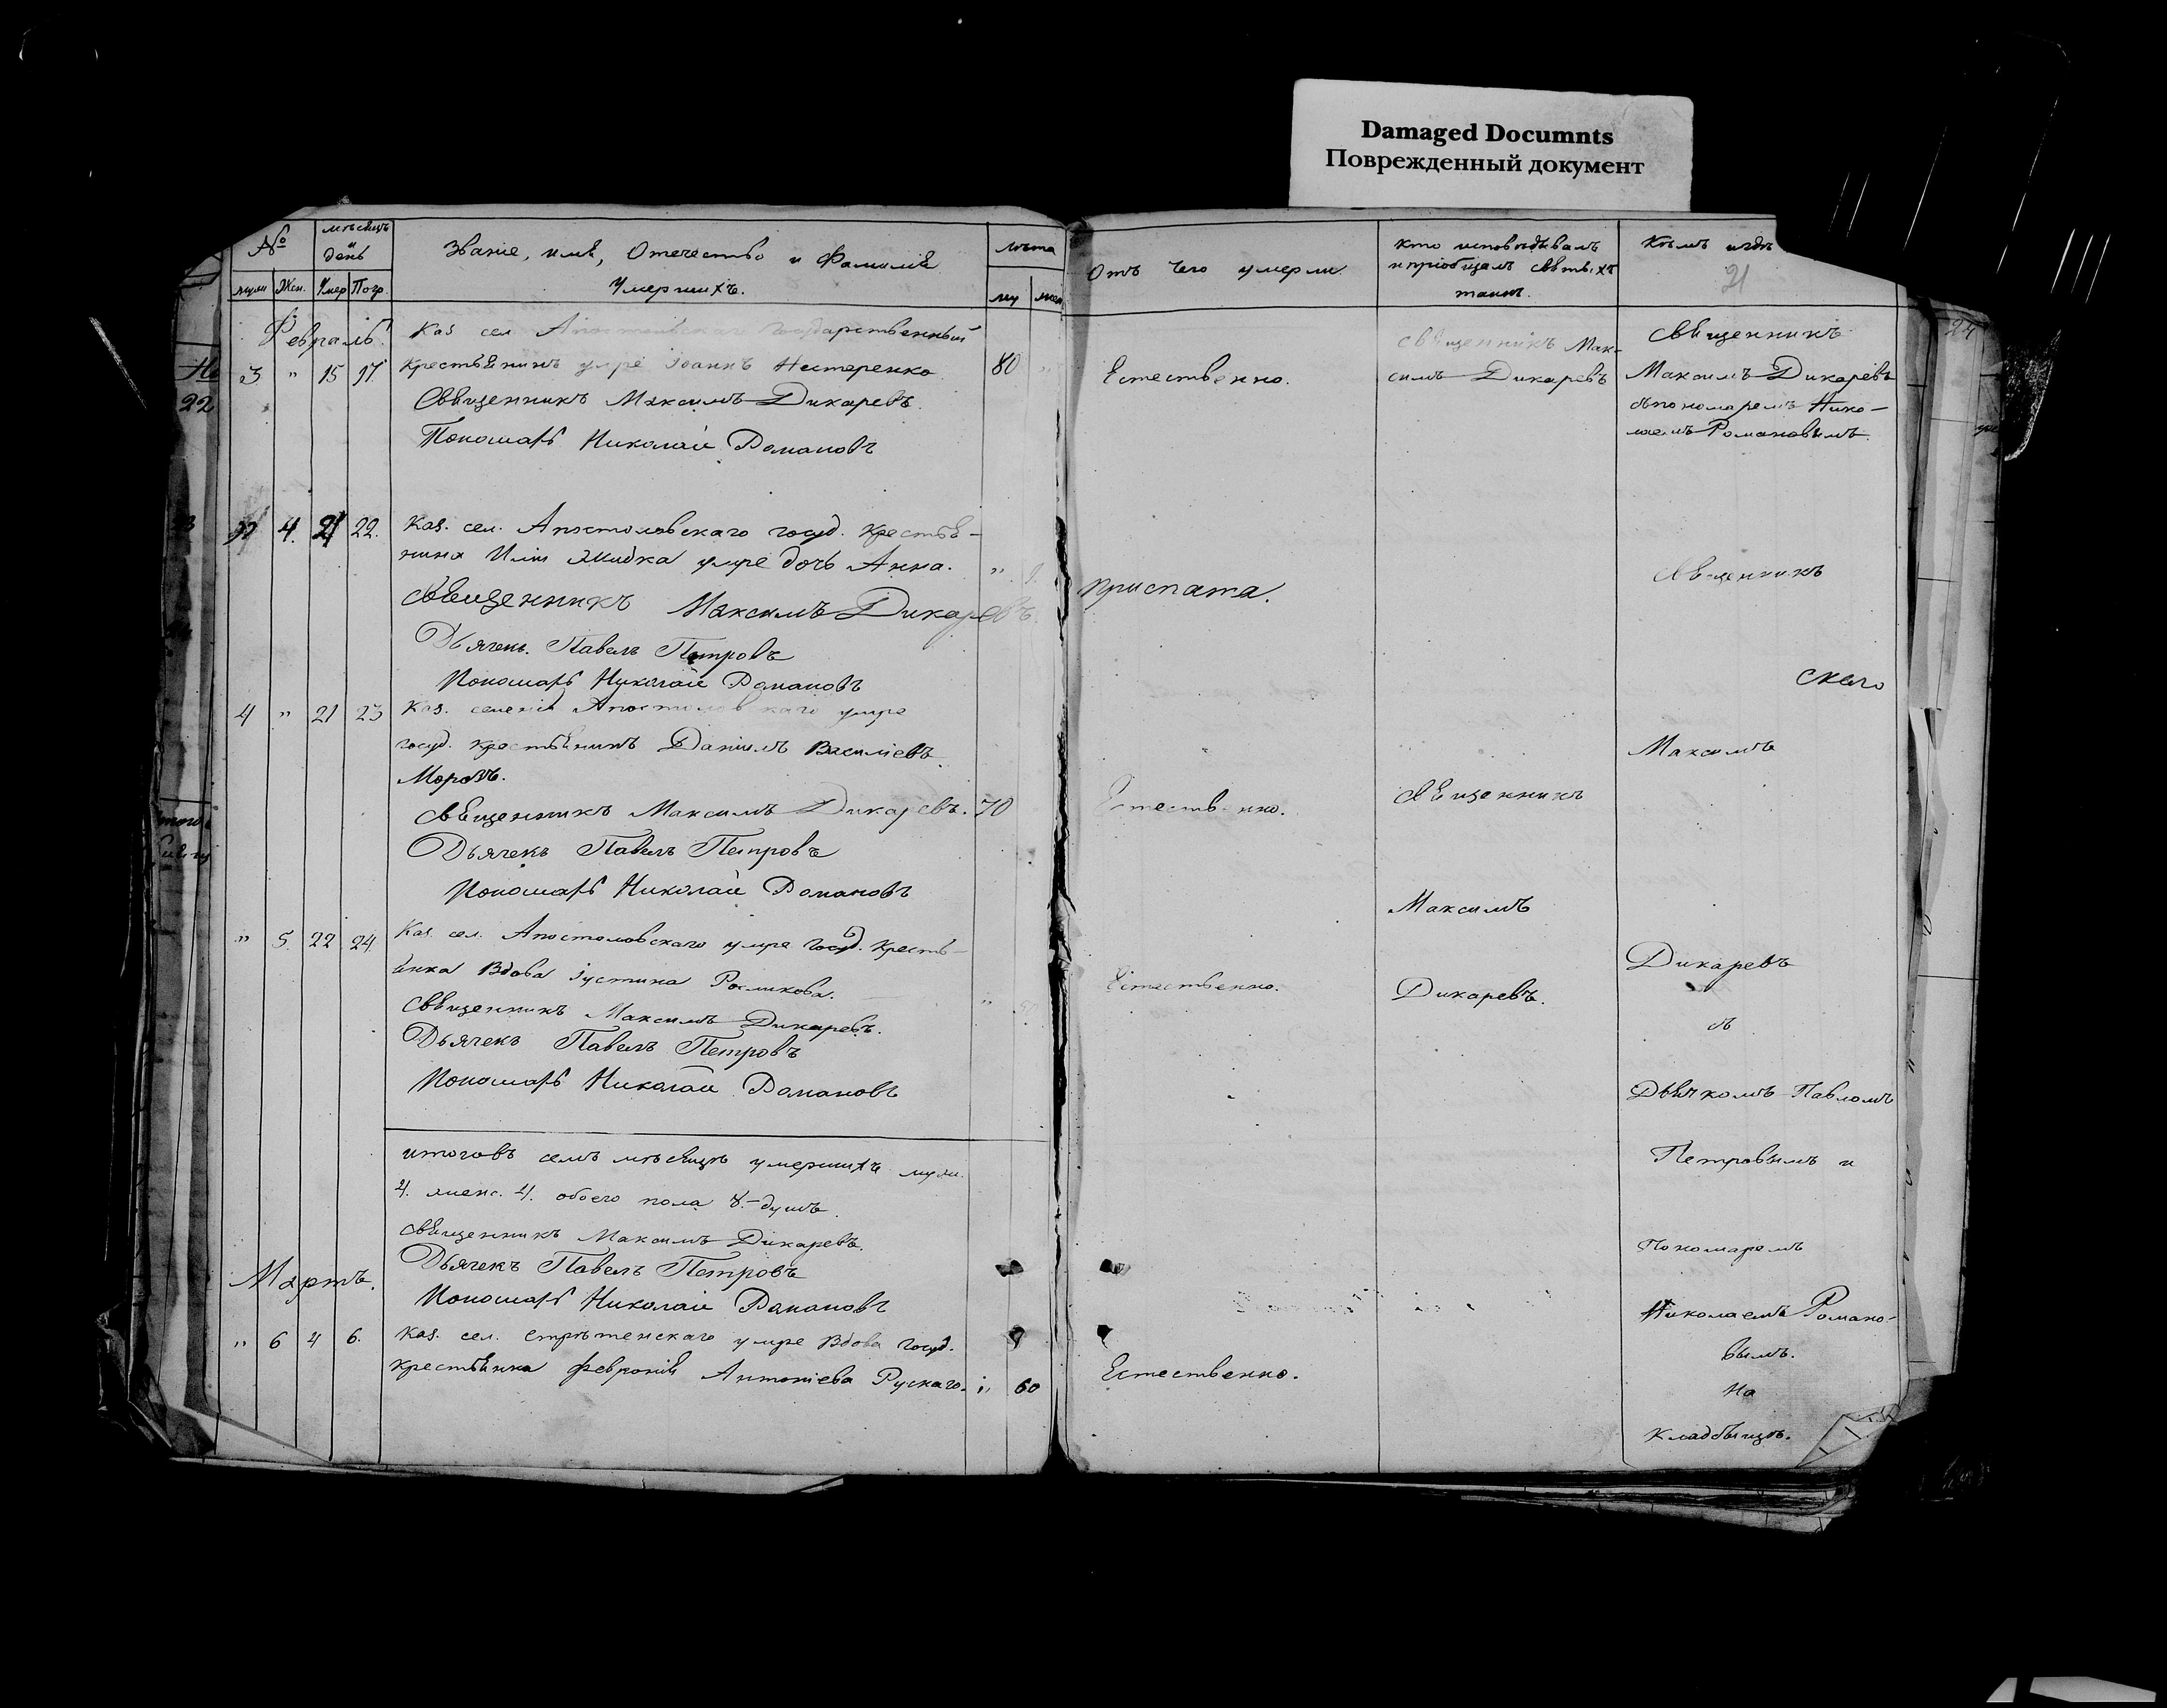 Damaged Documnts
Поврежденный документ
№
мѣсяцъ
и
день
Званіе, имя, Отечество и Фамилія
Умершихъ.
лѣта
муж Жен. Умер Погр.
му жен
Отъ чего умерли.
кто исповѣдывалъ
и пріобщалъ святыхъ
таинъ.
Кѣмъ и гдѣ
21
Февраль.
Каз сел Апостоловскаго Государственный
3 " 15 17 крестьянинъ умре Іоаннъ Нестеренко 80 "
Священникъ Максимъ Дикаревъ.
Пономарь Николай Романовъ
Естественно.
священникъ Мак-
симъ Дикаревъ
Священникъ
Максимъ Дикаревъ
съ пономаремъ Нико-
лаемъ Романовымъ.
22
" 4. 21 22. Каз. сел. Апостоловскаго госуд. крестья-
нина Иліи умре дочь Анна. "
Священникъ Максимъ Дикаревъ.
Дьячекъ. Павелъ Петровъ
Пономарь Николай Романовъ
приспата.
Священникъ
скаго
4 " 21 23 Каз. селенія Апостоловскаго умре
госуд. крестьянинъ Даніилъ Василіевъ
Морозъ.
Священникъ Максимъ Дикаревъ. 70
Дьячекъ Павелъ Петровъ
Пономарь Николай Романовъ
Естественно.
Священникъ
Максимъ
Максимъ
" 5. 22 24 Каз. сел. Апостоловскаго умре госуд. кресть-
янка Вдова Іустина
Священникъ Максимъ Дикаревъ.
Дьячекъ Павелъ Петровъ
Пономарь Николай Романовъ
Естественно.
Дикаревъ.
Дикаревъ
съ
Дьячкомъ Павломъ
Петровымъ и
Пономаремъ
Николаемъ Романо-
вымъ.
на
кладбыщѣ.
итого въ семъ мѣсяцѣ умершихъ муж.
4. женс. 4. обоего пола 8.-душъ.
Священникъ Максимъ Дикаревъ.
Дьячекъ Павелъ Петровъ
Пономарь Николай Романовъ
Мартъ.
" 6 4 6. Каз. сел. стрѣтенскаго умре Вдова госуд.
крестьянка Февронія Антоніева Рускаго. " 60
Естественно.
24